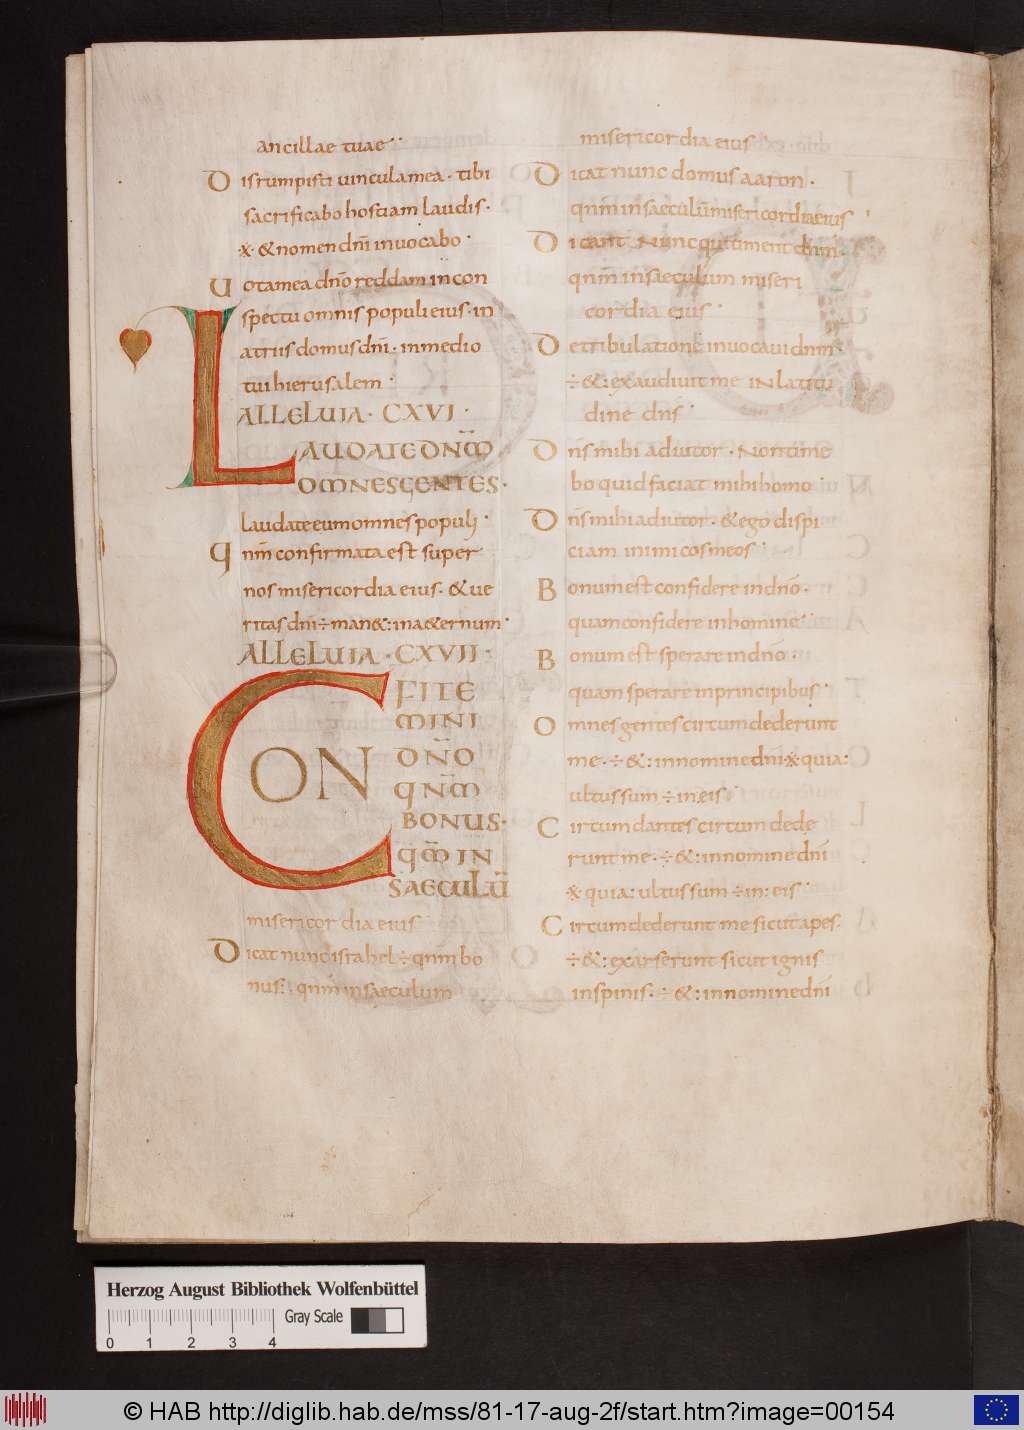 ancillae tuae
Disrumpisti uincula mea · tibi
sacrificabo hostiam laudis ·
※ & nomen dn̄i inuocabo ·
Uota mea dn̄o reddam in con
spectu omnis populi eius · in
atriis domus dn̄i · in medio
tui hierusalem ·
ALLELUIA · CXVI ·
LAUDATE DN̄M̄
OMNES GENTES ·
laudate eum omnes populi
qnm̄ confirmata est super
nos misericordia eius · & ue
ritas dn̄i ÷ man&: in a&ernum ·
ALLELUIA · CXVII ·
CON
FITE
MINI
DN̄O
QNM̄
BONUS ·
QM̄ IN
SAECULŪ
misericordia eius
Dicat nunc israhel ÷ qnm̄ bo
nus: · qnm̄ in saeculum
misericordia eius
Dicat nunc domus aaron ·
qnm̄ in saeculū misericordia eius
Dicant Nunc qui timent dnm̄ ·
qnm̄ in saeculum miseri
cordia eius ·
De tribulatione inuocaui dnm̄ ·
÷ &: exaudiuit me IN latitu
dine dn̄s ·
Dn̄s mihi adiutor · Non time
bo quid faciat mihi homo ·
Dn̄s mihi adiutor · & ego dispi
ciam inimicos meos ·
Bonum est confidere in dn̄o ·
quam confidere in homine
Bonum est sperare in dn̄o ·
quam sperare in principibus
Omnes gentes circumdederunt
me · ÷ &: in nomine dn̄i ※ quia:
ultus sum ÷ in: eis ·
Circumdantes circumdede
runt me · ÷ &: in nomine dn̄i
※ quia: ultus sum ÷ in: eis ·
Circumdederunt me sicut apes ·
÷ &: exarserunt sicut ignis
in spinis · ÷ &: in nomine dn̄i
Herzog August Bibliothek Wolfenbüttel
Gray Scale
0 1 2 3 4
© HAB http://diglib.hab.de/mss/81-17-aug-2f/start.htm?image=00154